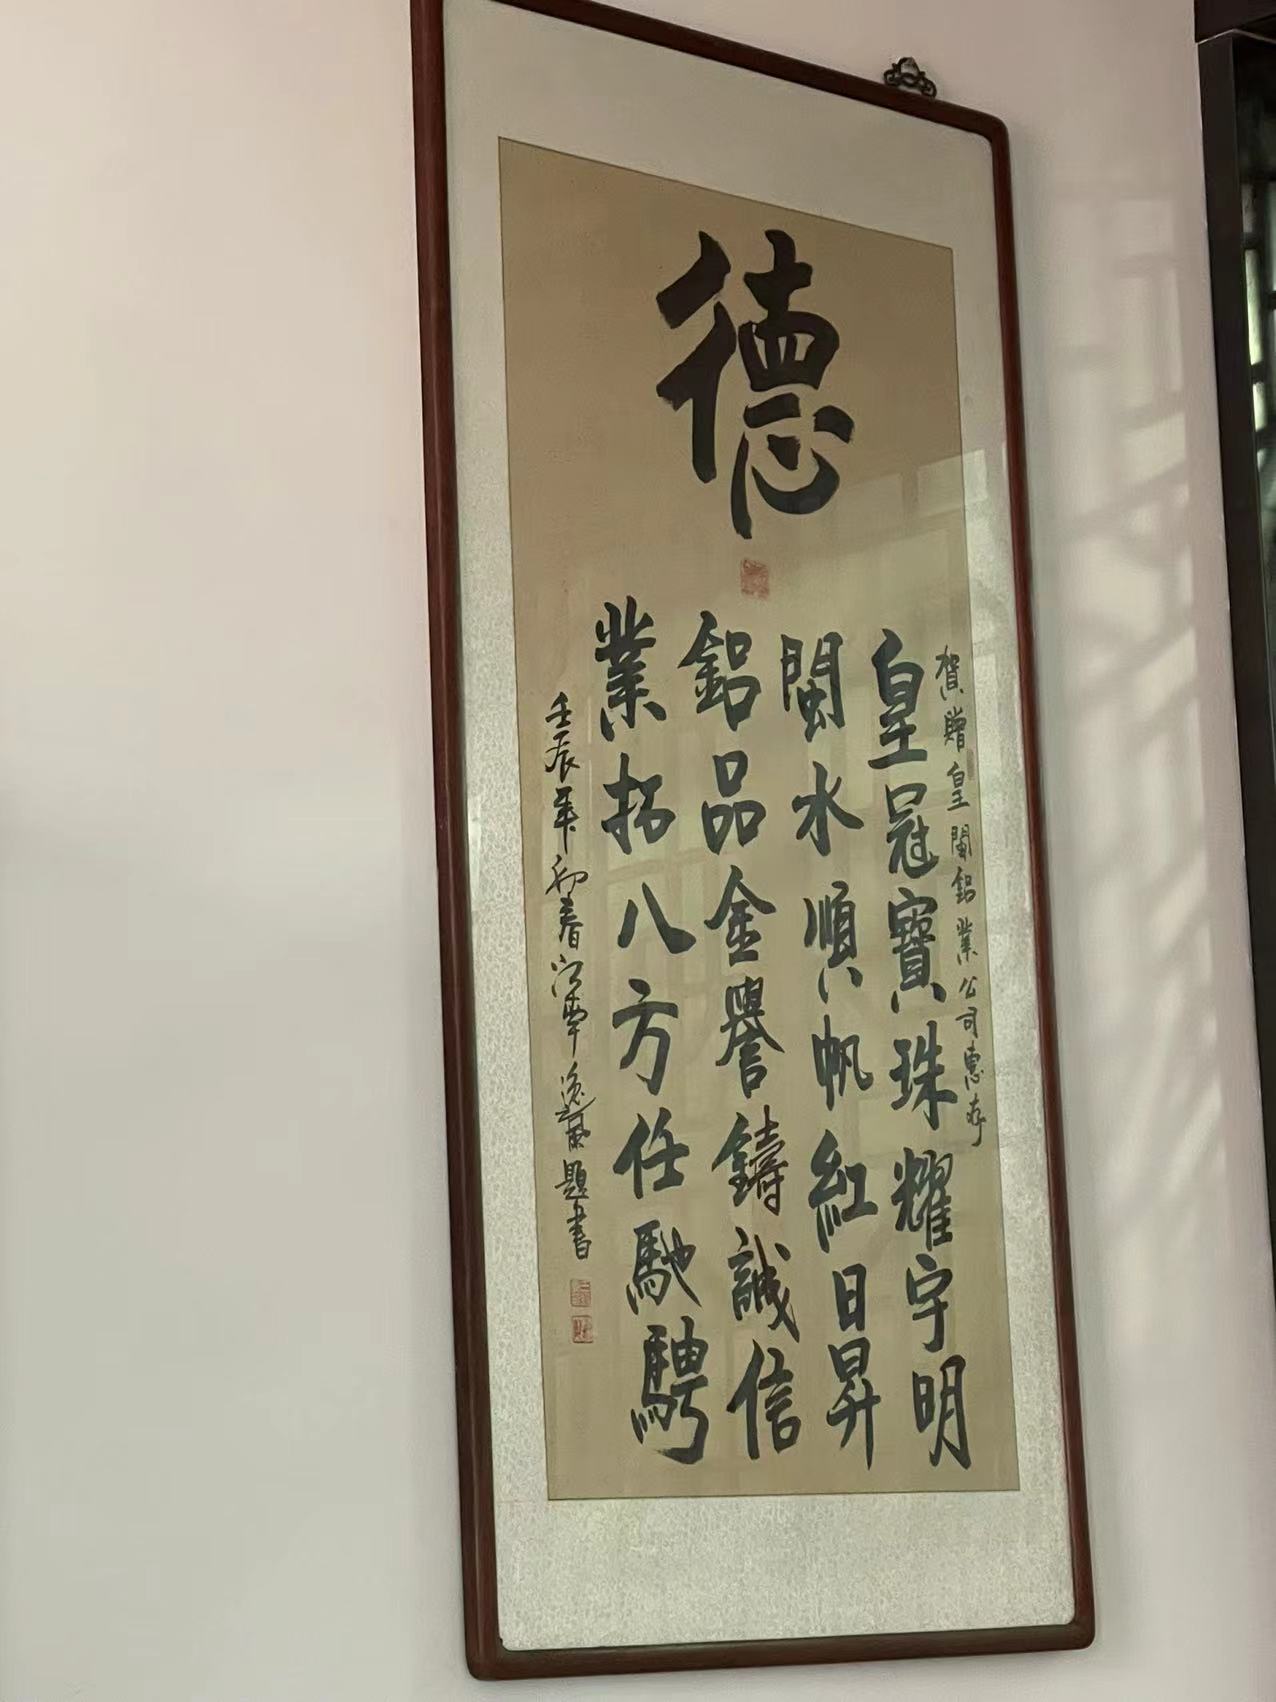 德
賀贈皇閩鋁業公司惠存
皇冠寶珠耀宇明
閩水順帆紅日昇
鋁品金譽鑄誠信
業拓八方任馳騁
壬辰年初春江寧逸風題書